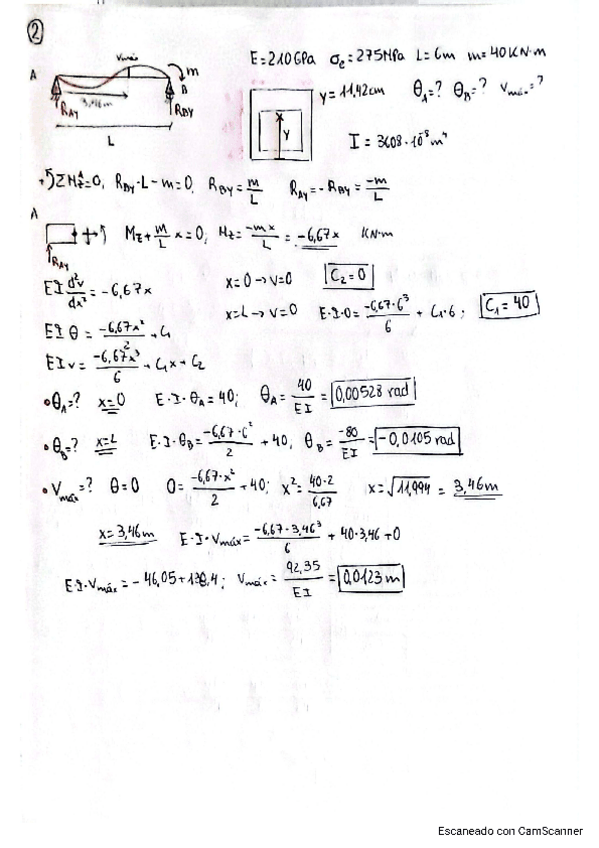 2
E=210GPa σe=275MPa L=6m m=40KN·m
A Vmáx m
B
RAy 3,46m RBy
L
y=11,42cm θA=? θB=? Vmáx=?
y
I = 3608·10⁻⁸m⁴
+↺ΣMzᴬ=0, RBy·L-m=0, RBy=m/L RAy=-RBy=-m/L
A
RAy
Mz+m/L x=0; Mz=-mx/L=-6,67x KN·m
EI d²v/dx²=-6,67x x=0→v=0 C2=0
x=L→v=0 E·I·0=-6,67·6³/6+C1·6; C1=40
EIθ=-6,67x²/2+C1
EIv=-6,67x³/6+C1x+C2
•θA=? x=0 E·I·θA=40; θA=40/EI=0,00528 rad
•θB=? x=L E·I·θB=-6,67·6²/2+40, θB=-80/EI=-0,0105 rad
•Vmáx=? θ=0 0=-6,67·x²/2+40; x²=40·2/6,67 x=√11,994=3,46m
x=3,46m E·I·Vmáx=-6,67·3,46³/6+40·3,46+0
E·I·Vmáx=-46,05+138,4; Vmáx=92,35/EI=0,0123m
Escaneado con CamScanner